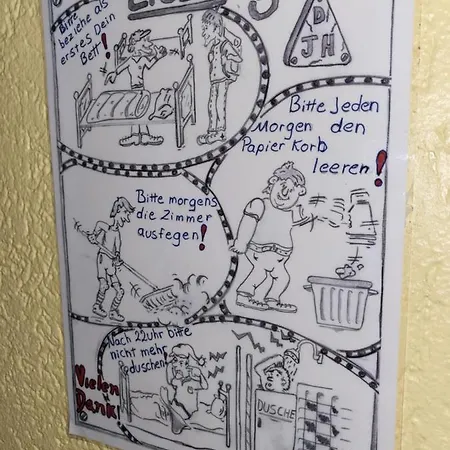 Bitte
beziehe als
erstes Dein
Bett!
DJH
Bitte Jeden
Morgen den
Papier Korb
leeren!
Bitte morgens
die Zimmer
ausfegen!
Nach 22Uhr bitte
nicht mehr
duschen!
DUSCHE
Vielen
Dank!